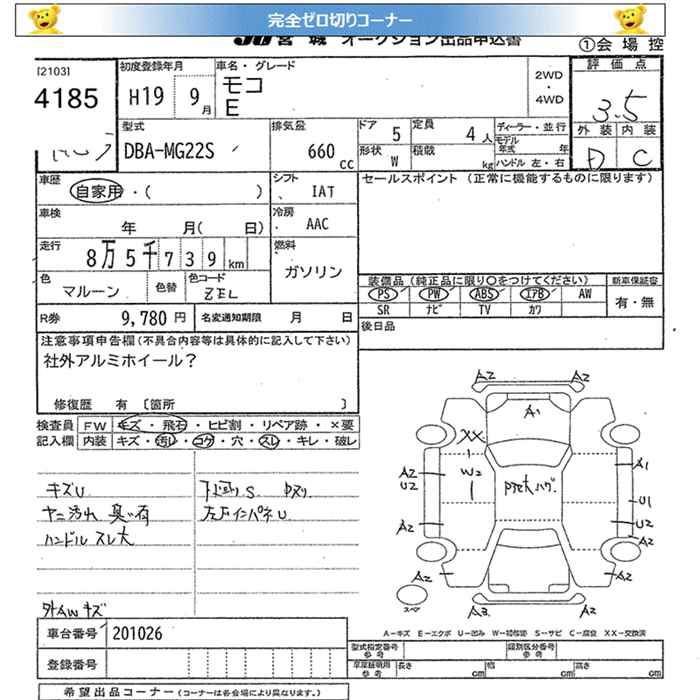 完全ゼロ切りコーナー
JU 宮 城 オークション出品申込書
①会 場 控
[2103]
4185
初度登録年月
H19 9月
車名・グレード
モコ
E
2WD
・
4WD
評 価 点
3.5
外 装 内 装
D C
型式
DBA-MG22S
排気量
660 cc
ドア 5
定員 4人
形状 W
積載 kg
ディーラー・並行
モデル年式 年
ハンドル 左・右
車歴
自家用・( )
シフト
IAT
車検
年 月( 日)
冷房
AAC
走行
8万5千739km
燃料
ガソリン
色
マルーン
色替
色コード
ZEL
R券 9,780 円
名変通知期限 月 日
セールスポイント (正常に機能するものに限ります)
装備品(純正品に限り〇をつけてください)
新車保証書
PS PW ABS エアB AW
有・無
SR ナビ TV カワ
後日品
注意事項申告欄(不具合内容等は具体的に記入して下さい)
社外アルミホイール?
修復歴 有 〔箇所 〕
検査員
記入欄
FW キズ・飛石・ヒビ割・リペア跡・×要
内装 キズ・汚レ・コゲ・穴・スレ・キレ・破レ
キズU
ヤニ汚れ 臭い有
ハンドル スレ大
下廻り S
外AW キズ
A2 A2
A1
XX
W2
A2
U2
A2
A2
A1
U1
U2
A2
A2
A3 A2
スペア
A-キズ E-エクボ U-凹み W-補修跡 S-サビ C-腐食 XX-交換済
車台番号 201026
登録番号
型式指定番号
参考
類別区分番号
参考
車庫証明用
参考
長さ cm 幅 cm 高さ cm
希望出品コーナー(コーナーは各会場により異なります。)